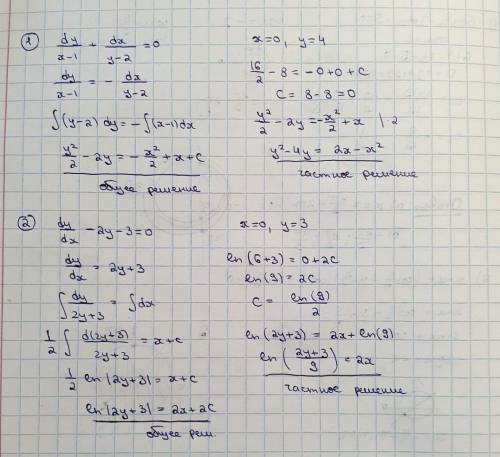 1) dy/(x-1) + dx/(y-2) = 0
dy/(x-1) = - dx/(y-2)
∫(y-2) dy = -∫(x-1)dx
y²/2 - 2y = - x²/2 + x + C
общее решение
x=0, y=4
16/2 - 8 = -0+0+C
C = 8-8=0
y²/2 - 2y = -x²/2 + x |·2
y²-4y = 2x-x²
частное решение
2) dy/dx - 2y-3=0
dy/dx = 2y+3
∫ dy/(2y+3) = ∫dx
1/2 ∫ d(2y+3)/(2y+3) = x+C
1/2 ln|2y+3| = x+C
ln|2y+3| = 2x+2C
общее реш.
x=0, y=3
ln(6+3) = 0+2C
ln(9) = 2C
C = ln(9)/2
ln(2y+3) = 2x+ln(9)
ln((2y+3)/9) = 2x
частное решение